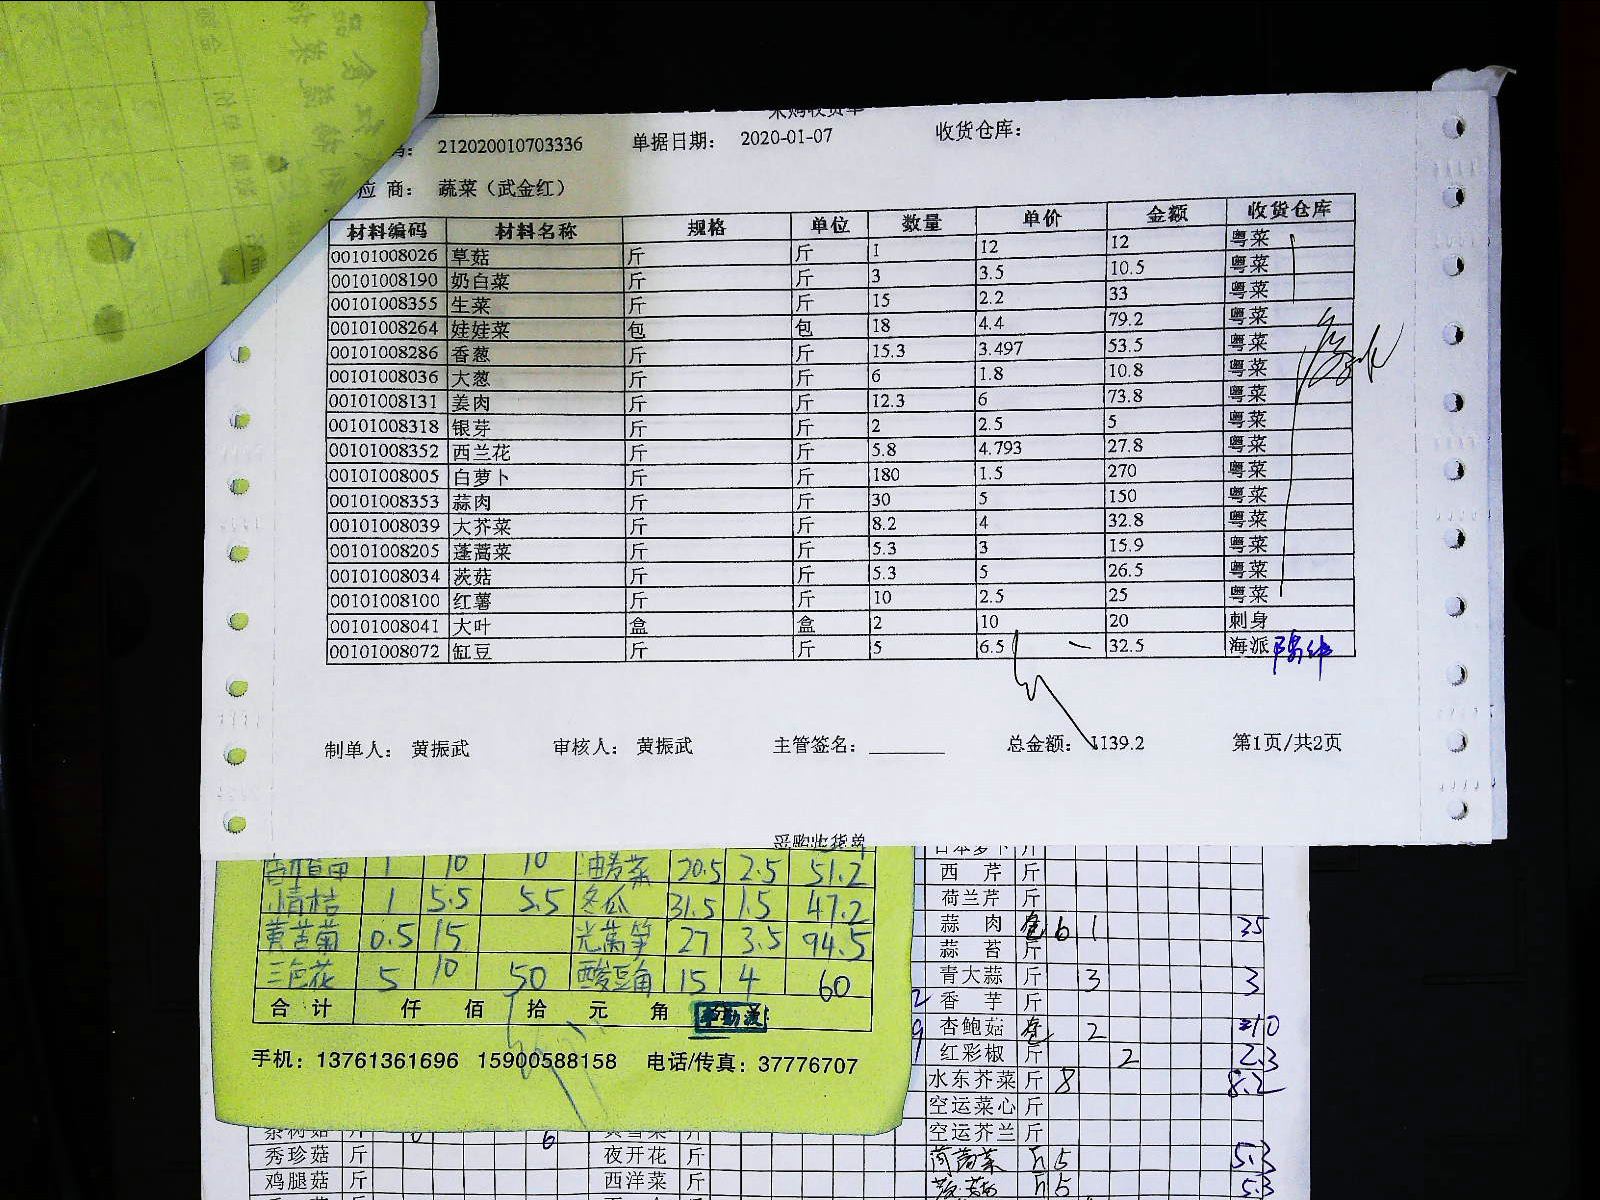 采购收货单
212020010703336 单据日期： 2020-01-07 收货仓库：
应 商： 蔬菜（武金红）
材料编码 材料名称 规格 单位 数量 单价 金额 收货仓库
00101008026 草菇 斤 斤 1 12 12 粤菜
00101008190 奶白菜 斤 斤 3 3.5 10.5 粤菜
00101008355 生菜 斤 斤 15 2.2 33 粤菜
00101008264 娃娃菜 包 包 18 4.4 79.2 粤菜
00101008286 香葱 斤 斤 15.3 3.497 53.5 粤菜
00101008036 大葱 斤 斤 6 1.8 10.8 粤菜
00101008131 姜肉 斤 斤 12.3 6 73.8 粤菜
00101008318 银芽 斤 斤 2 2.5 5 粤菜
00101008352 西兰花 斤 斤 5.8 4.793 27.8 粤菜
00101008005 白萝卜 斤 斤 180 1.5 270 粤菜
00101008353 蒜肉 斤 斤 30 5 150 粤菜
00101008039 大芥菜 斤 斤 8.2 4 32.8 粤菜
00101008205 蓬蒿菜 斤 斤 5.3 3 15.9 粤菜
00101008034 茨菇 斤 斤 5.3 5 26.5 粤菜
00101008100 红薯 斤 斤 10 2.5 25 粤菜
00101008041 大叶 盒 盒 2 10 20 刺身
00101008072 缸豆 斤 斤 5 6.5 32.5 海派
制单人： 黄振武 审核人： 黄振武 主管签名： 总金额： 1139.2 第1页/共2页
采购收货单
1 10 10 油麦菜 20.5 2.5 51.2
青桔 1 5.5 5.5 冬瓜 31.5 1.5 47.2
黄苦菊 0.5 15 光莴笋 27 3.5 94.5
三色花 5 10 50 酸豆角 15 4 60
合 计 仟 佰 拾 元 角
手机：13761361696 15900588158 电话/传真：37776707
日本萝卜 斤
西 芹 斤
荷兰芹 斤
蒜 肉 6 1 35
蒜 苔 斤
青大蒜 斤 3 3
香 芋 斤
杏鲍菇 2 10
红彩椒 斤 2 2.3
水东芥菜 斤 8 8.2
空运菜心 斤
空运芥兰 斤
茼蒿菜 斤 5 5.3
斤 5 5.3
茶树菇 斤 6
秀珍菇 斤 夜开花 斤
鸡腿菇 斤 西洋菜 斤